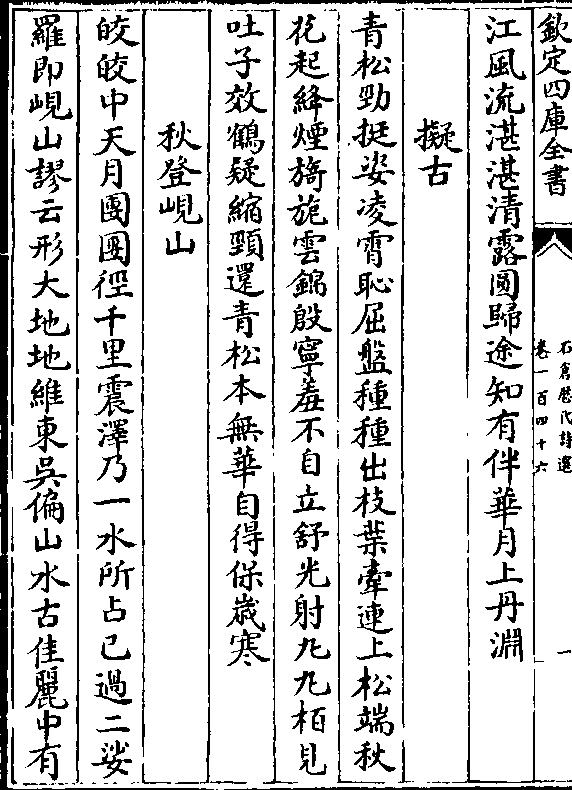 欽定四庫全書
石倉歷代詩選
卷一百四十六
一
江風流湛湛清露圓歸途知有伴華月上丹淵
擬古
青松勁挺姿凌霄恥屈盤種種出枝葉牽連上松端秋
花起絳煙旖旎雲錦殷寧羞不自立舒光射九九栢見
吐子效鶴疑縮頸還青松本無華自得保歲寒
秋登峴山
皎皎中天月團團徑千里震澤乃一水所占已過二娑
羅即峴山謬云形大地地維東吳偏山水古佳麗中有